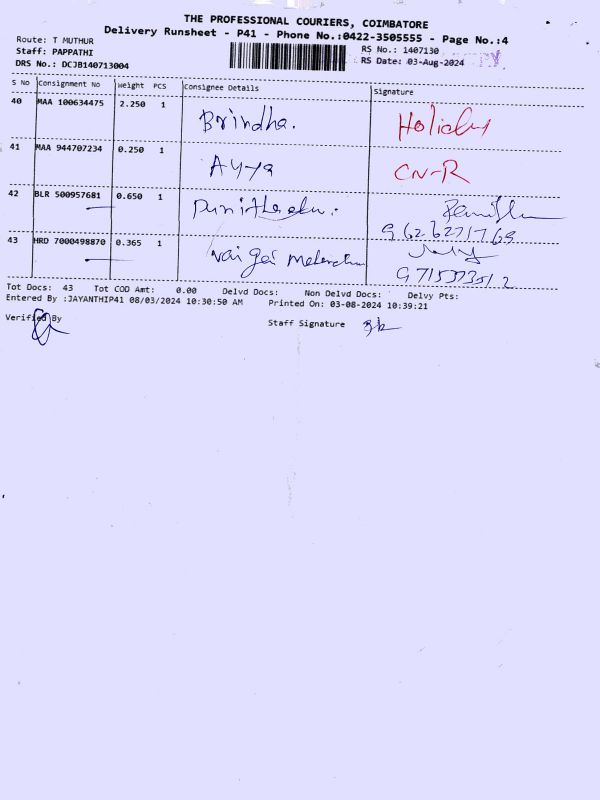 THE PROFESSIONAL COURIERS, COIMBATORE
Delivery Runsheet - P41 - Phone No.:0422-3505555 - Page No.:4
Route: T MUTHUR
RS No.: 1407130
Staff: PAPPATHI
RS Date: 03-Aug-2024
DRS No.: DCJB140713004
S No Consignment No Weight PCS Consignee Details Signature
40 MAA 100634475 2.250 1 Brindha. Holiday
41 MAA 944707234 0.250 1 Ayya CN-R
42 BLR 500957681 0.650 1
9626271769
43 HRD 7000498870 0.365 1 Vai gai
Tot Docs: 43 Tot COD Amt: 0.00 Delvd Docs: Non Delvd Docs: Delvy Pts:
Entered By :JAYANTHIP41 08/03/2024 10:30:50 AM Printed On: 03-08-2024 10:39:21
Verified By
Staff Signature